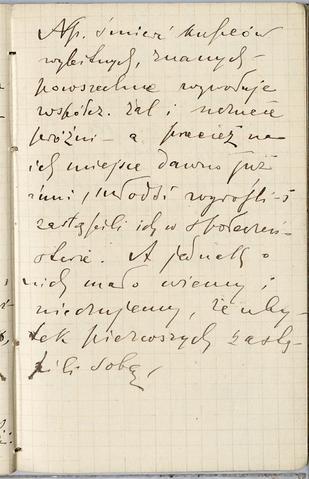 Np. śmierć kupców
wybitnych, znanych
powszechnie wywołuje
współcz. żal i uczucie
próżni – a przecież na
ich miejsce dawno już
inni, młodzi wyrośli – i
zastąpili ich w społeczeń-
stwie. A jednak o
nich mało wiemy i
nie czujemy, że uby-
tek pierwszych zastą-
pili sobą,